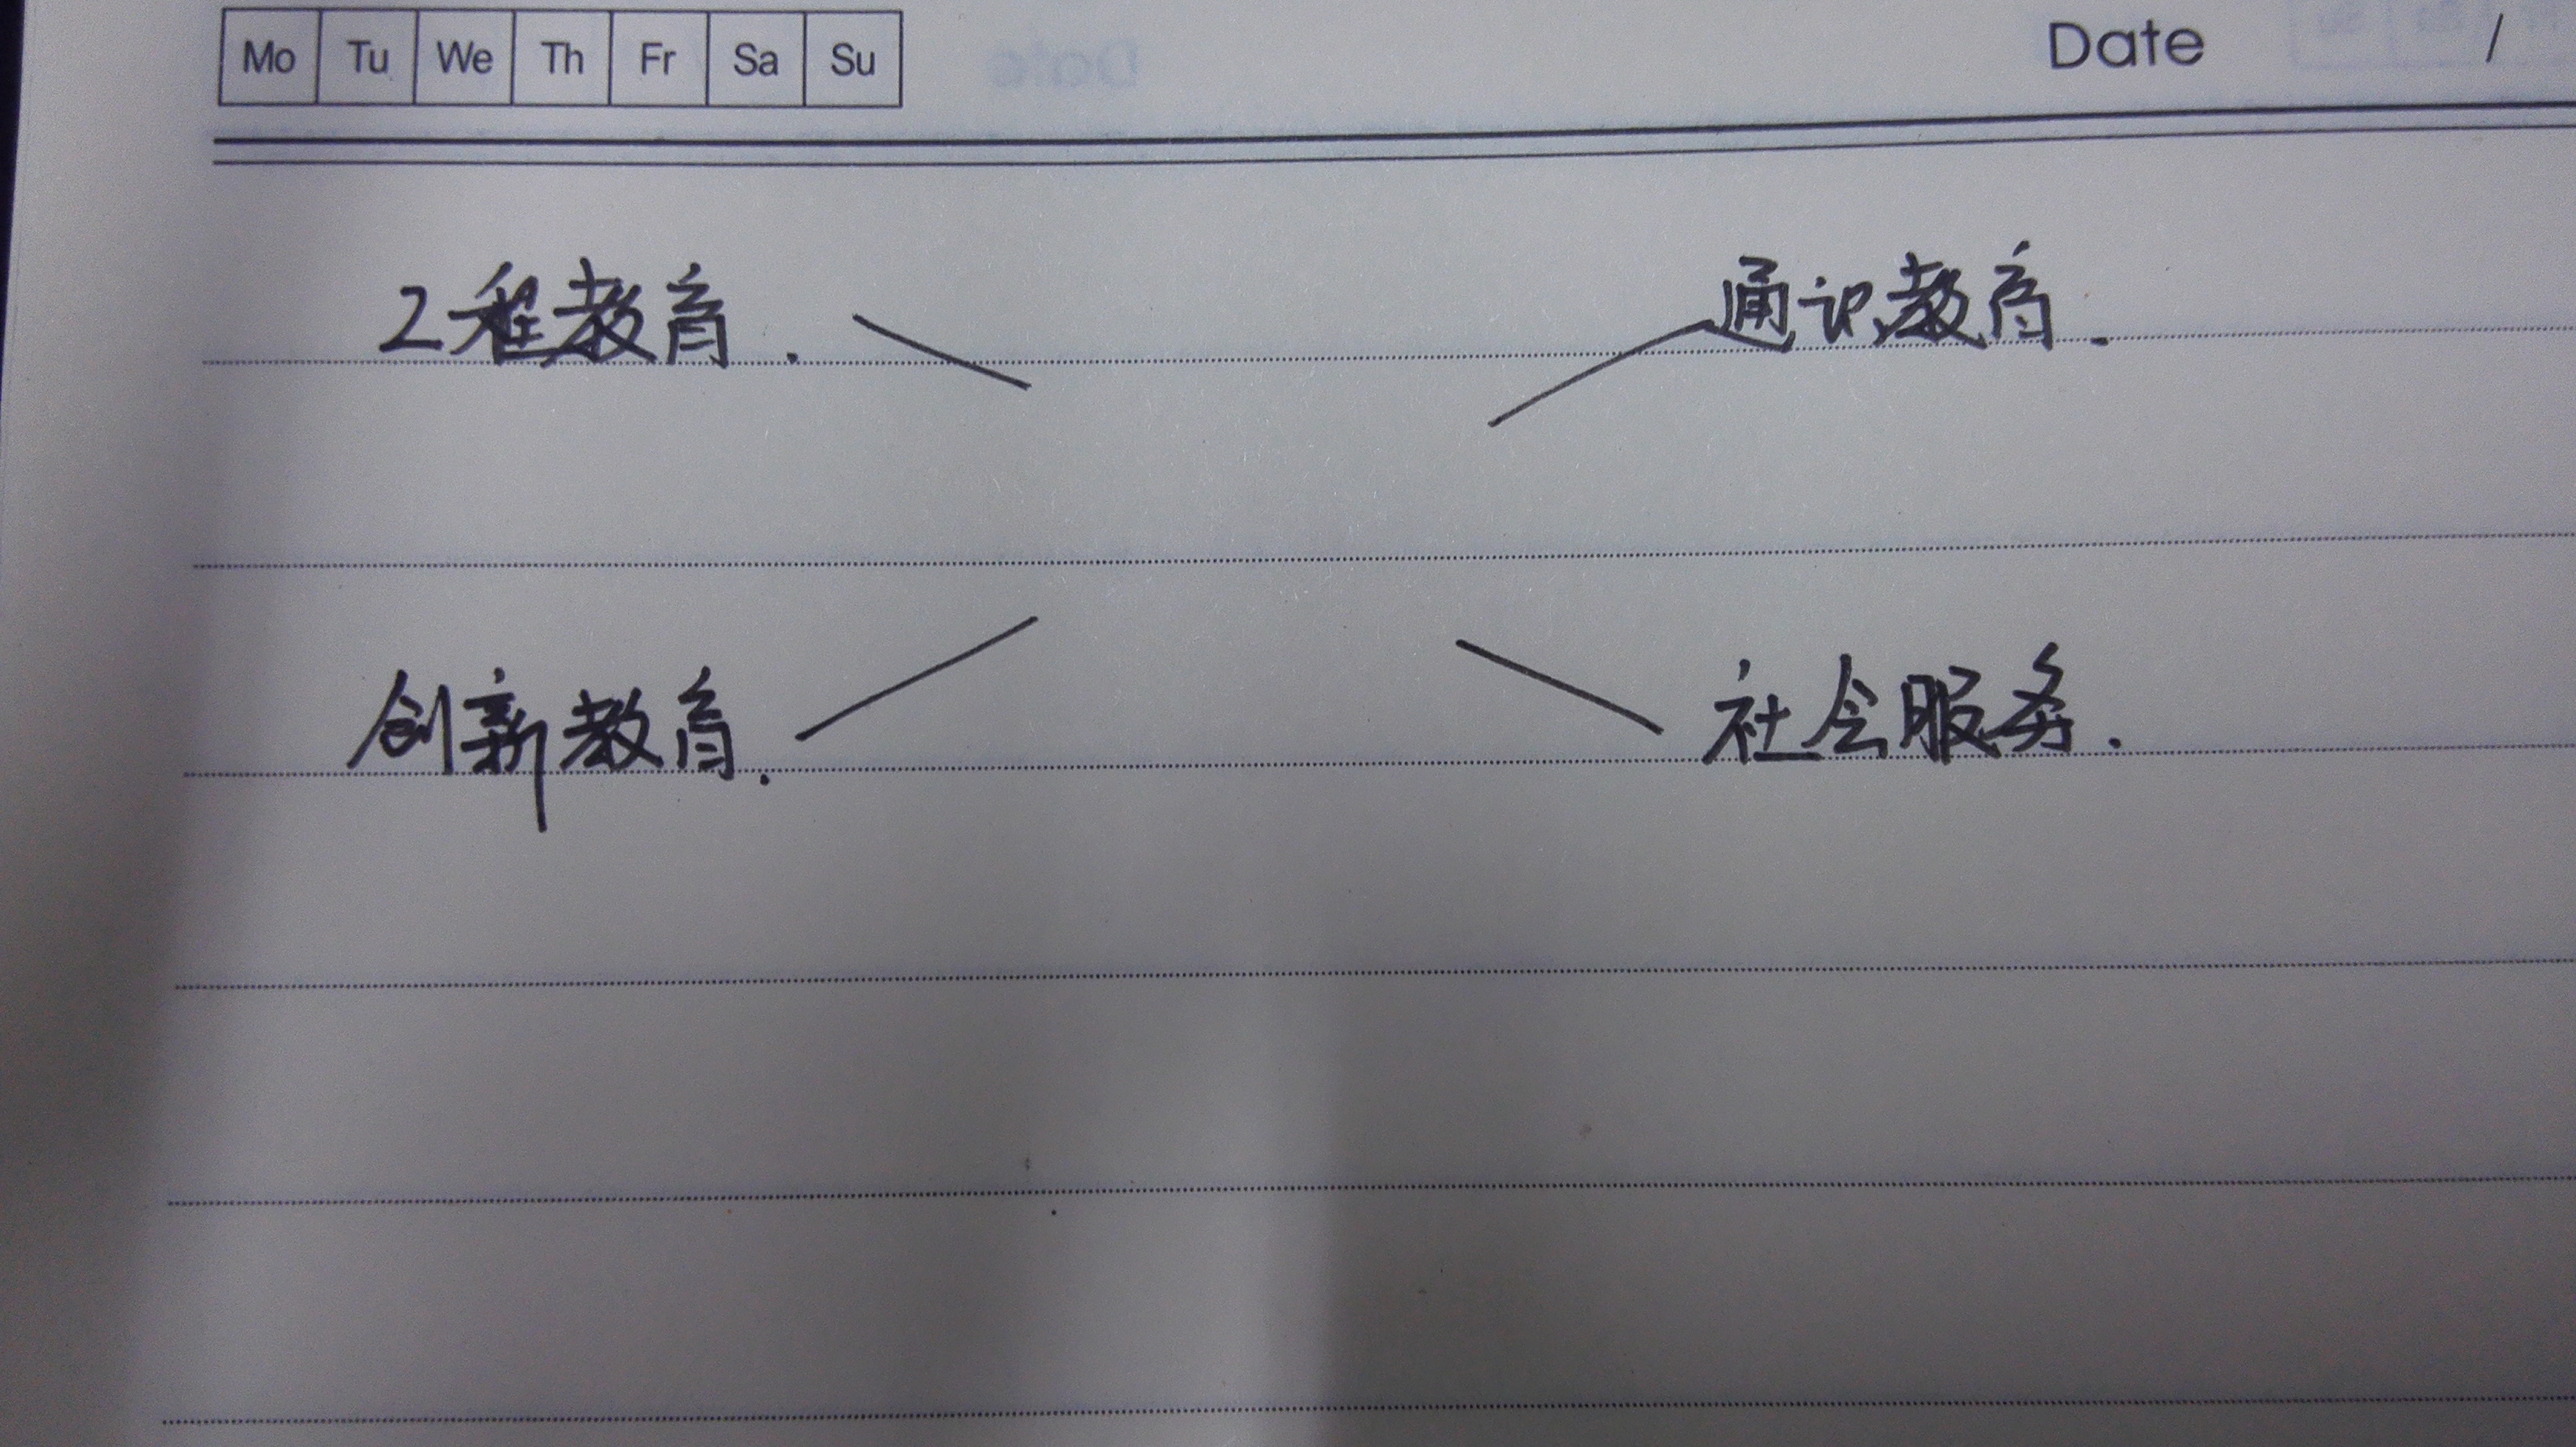 Mo Tu We Th Fr Sa Su
Date /
工程教育.
通识教育.
创新教育.
社会服务.